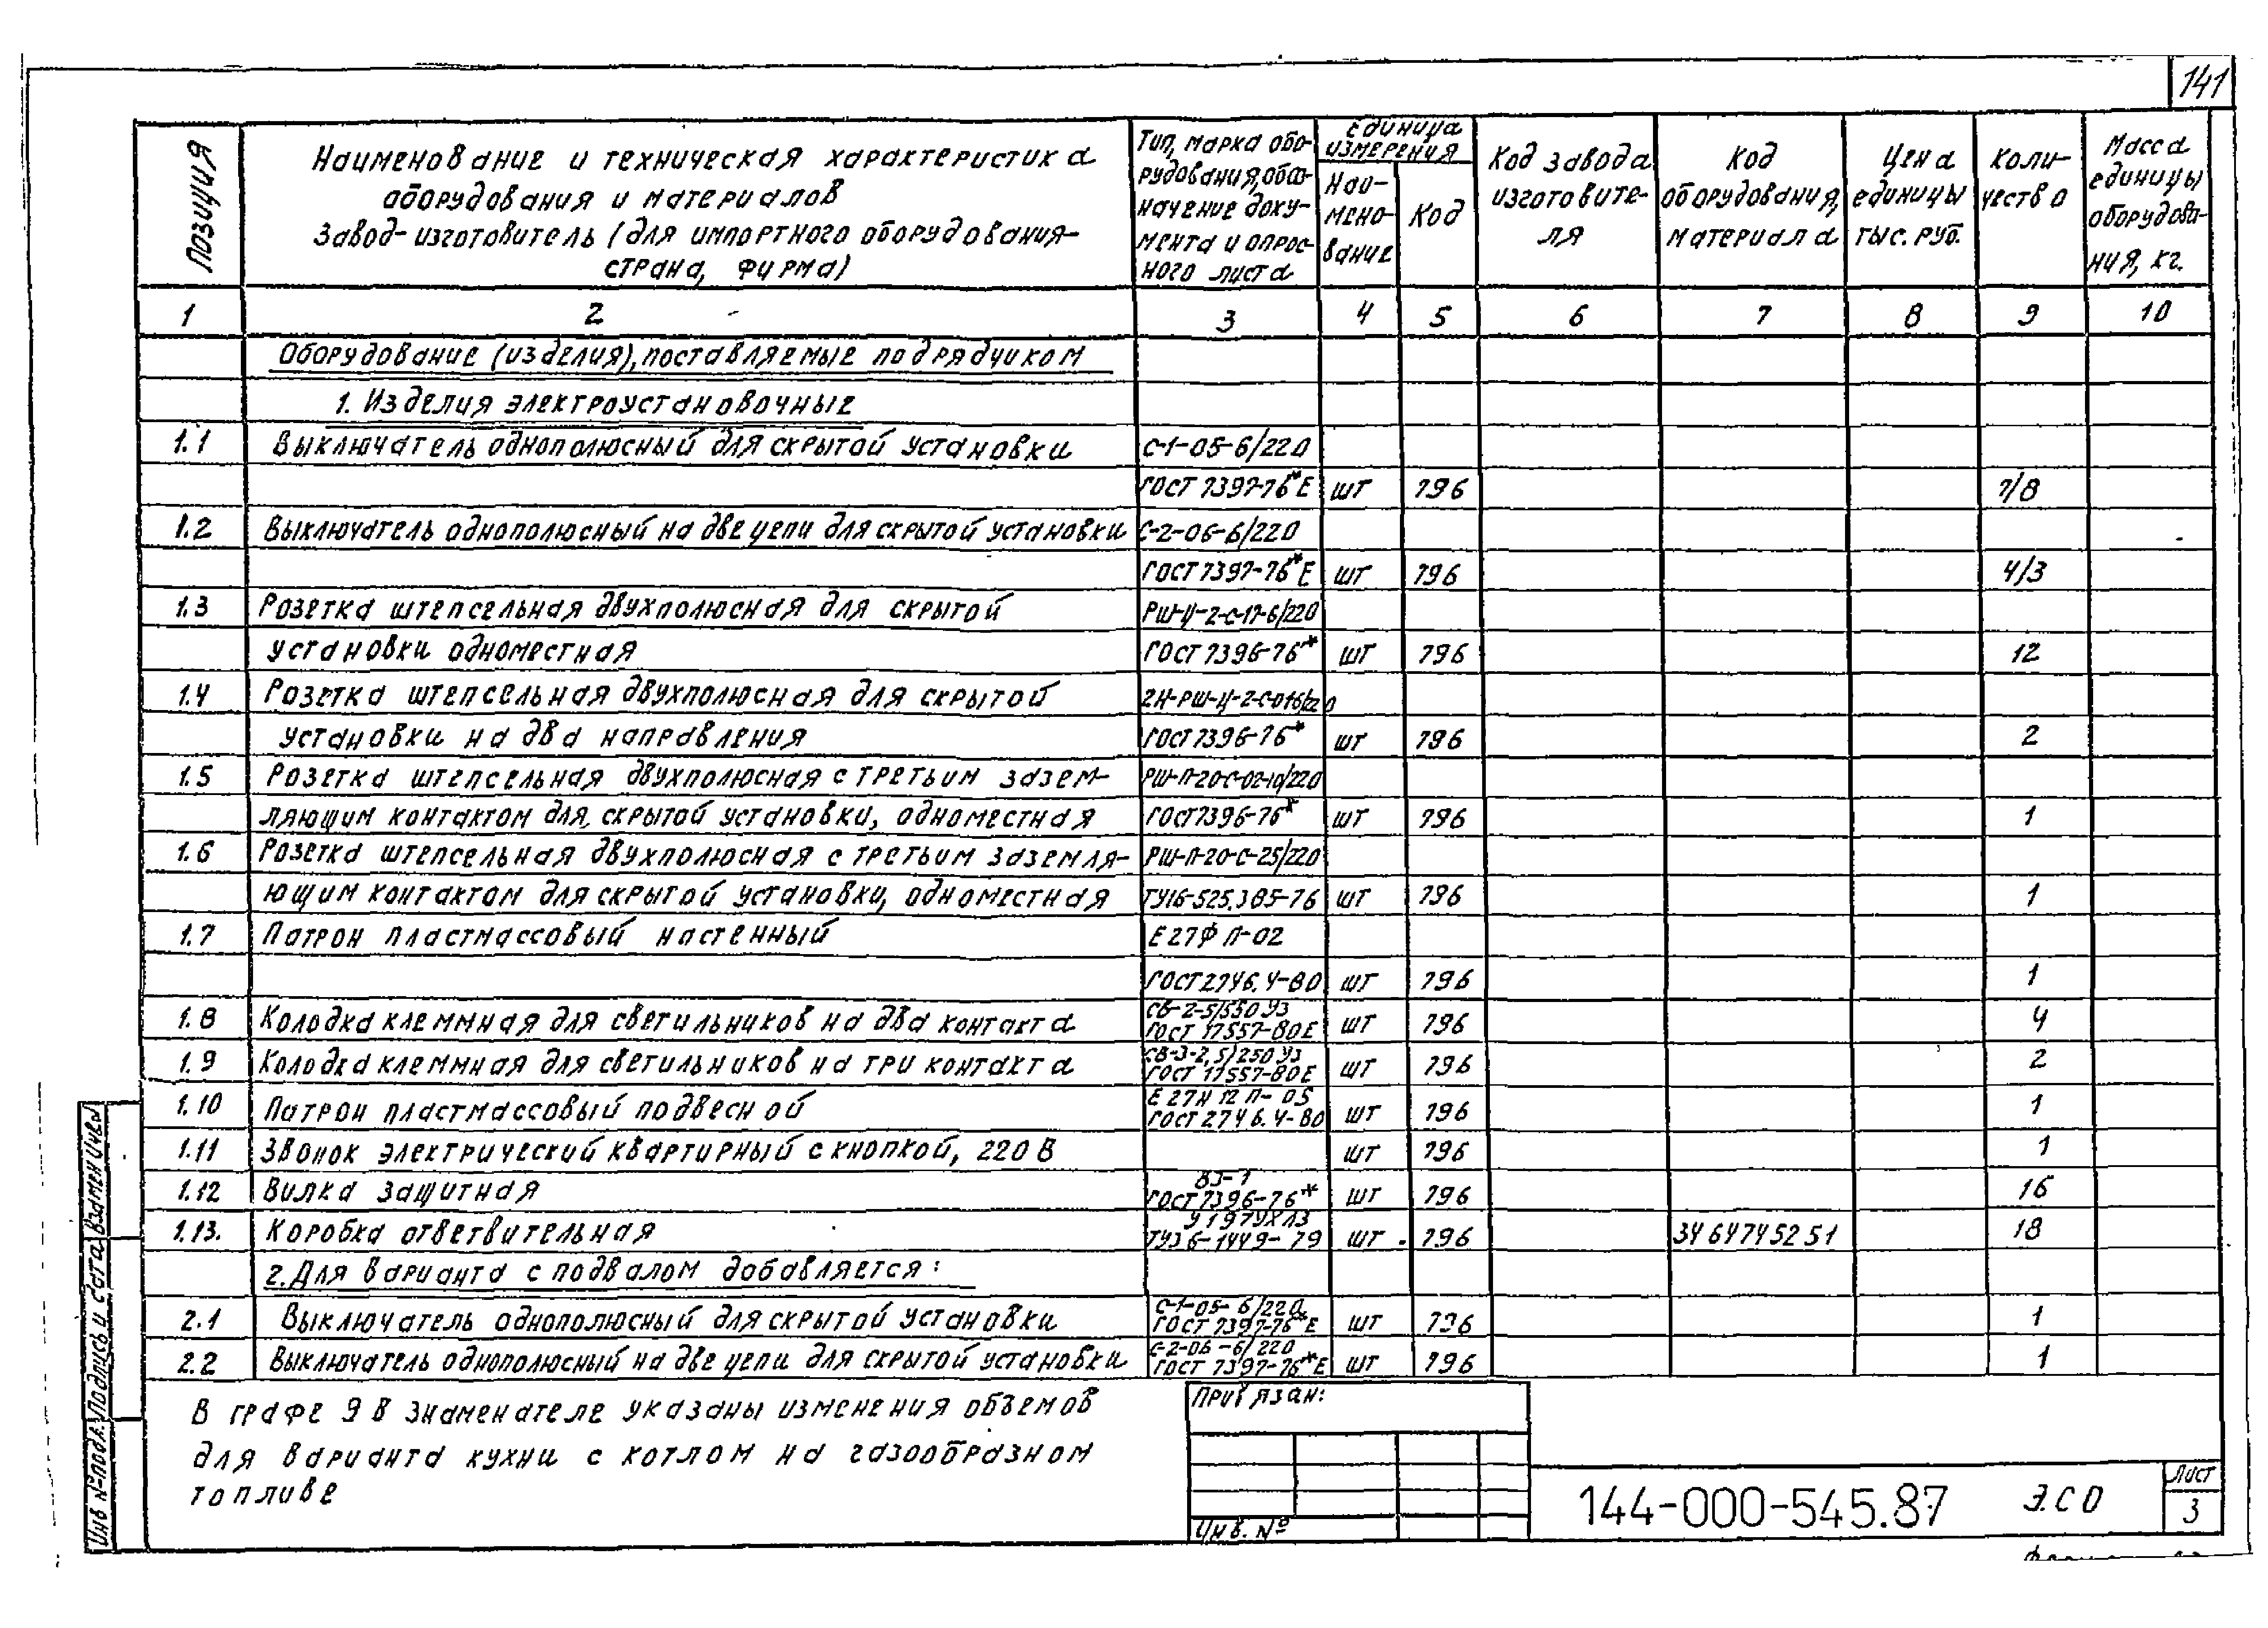 141
Позиция
Наименование и техническая характеристика
оборудования и материалов
Завод-изготовитель (для импортного оборудования-
страна, фирма)
Тип, марка обо-
рудования, обоз-
начение доку-
мента и опрос-
ного листа
Единица
измерения
Наи-
мено-
вание
Код
Код завода
изготовите-
ля
Код
оборудования,
материала
Цена
единицы
тыс. руб.
Коли-
чество
Масса
единицы
оборудова-
ния, кг.
1 2 3 4 5 6 7 8 9 10
Оборудование (изделия), поставляемые подрядчиком
1. Изделия электроустановочные
1.1 Выключатель однополюсный для скрытой установки С-1-05-6/220
ГОСТ 7397-76*Е шт 796 7/8
1.2 Выключатель однополюсный на две цепи для скрытой установки С-2-06-6/220
ГОСТ 7397-76*Е шт 796 4/3
1.3 Розетка штепсельная двухполюсная для скрытой РШ-Ц-2-С-17-6/220
установки одноместная ГОСТ 7396-76* шт 796 12
1.4 Розетка штепсельная двухполюсная для скрытой
установки на два направления ГОСТ 7396-76* шт 796 2
1.5 Розетка штепсельная двухполюсная с третьим зазем- РШ-П-20-С-02-10/220
ляющим контактом для скрытой установки, одноместная ГОСТ 7396-76* шт 796 1
1.6 Розетка штепсельная двухполюсная с третьим заземля- РШ-П-20-С-25/220
ющим контактом для скрытой установки, одноместная ТУ16-525.385-76 шт 796 1
1.7 Патрон пластмассовый настенный Е27ФП-02
ГОСТ 2746.4-80 шт 796 1
1.8 Колодка клеммная для светильников на два контакта СВ-2-5/550 У3
ГОСТ 17557-80Е шт 796 4
1.9 Колодка клеммная для светильников на три контакта СВ-3-2,5/250 У3
ГОСТ 17557-80Е шт 796 2
1.10 Патрон пластмассовый подвесной Е27Н12П-05
ГОСТ 2746.4-80 шт 796 1
1.11 Звонок электрический квартирный с кнопкой, 220 В шт 796 1
1.12 Вилка защитная ВЗ-1
ГОСТ 7396-76* шт 796 16
1.13. Коробка ответвительная У197УХЛ3
ТУ36-1449-79 шт 796 3464745251 18
2. Для варианта с подвалом добавляется:
2.1 Выключатель однополюсный для скрытой установки С-1-05-6/220
ГОСТ 7397-76*Е шт 796 1
2.2 Выключатель однополюсный на две цепи для скрытой установки С-2-06-6/220
ГОСТ 7397-76*Е шт 796 1
В графе 9 в знаменателе указаны изменения объемов
для варианта кухни с котлом на газообразном
топливе
Привязан:
Инв. №
144-000-545.87 Э.СО
Лист
3
Инв № подл. Подпись и дата Взамен Инв №